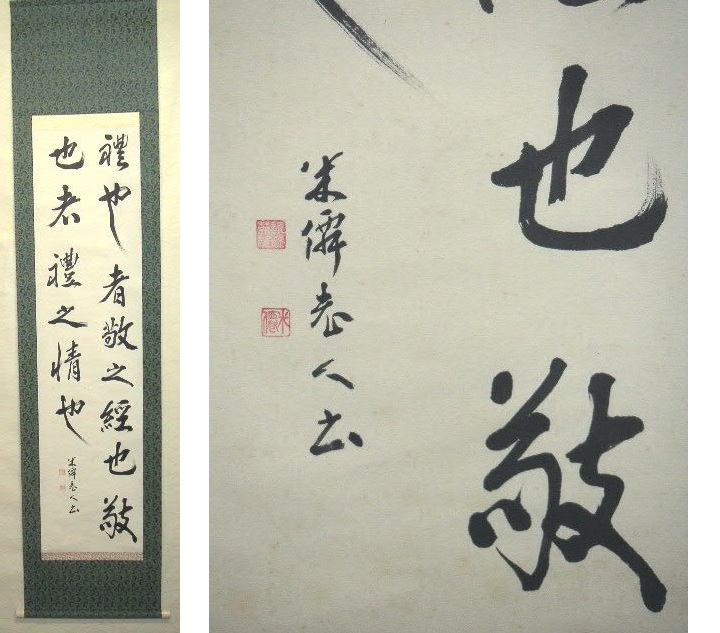 禮也者敬之經也敬
也者禮之情也
米僊老人書
也敬
米僊老人書
米僊